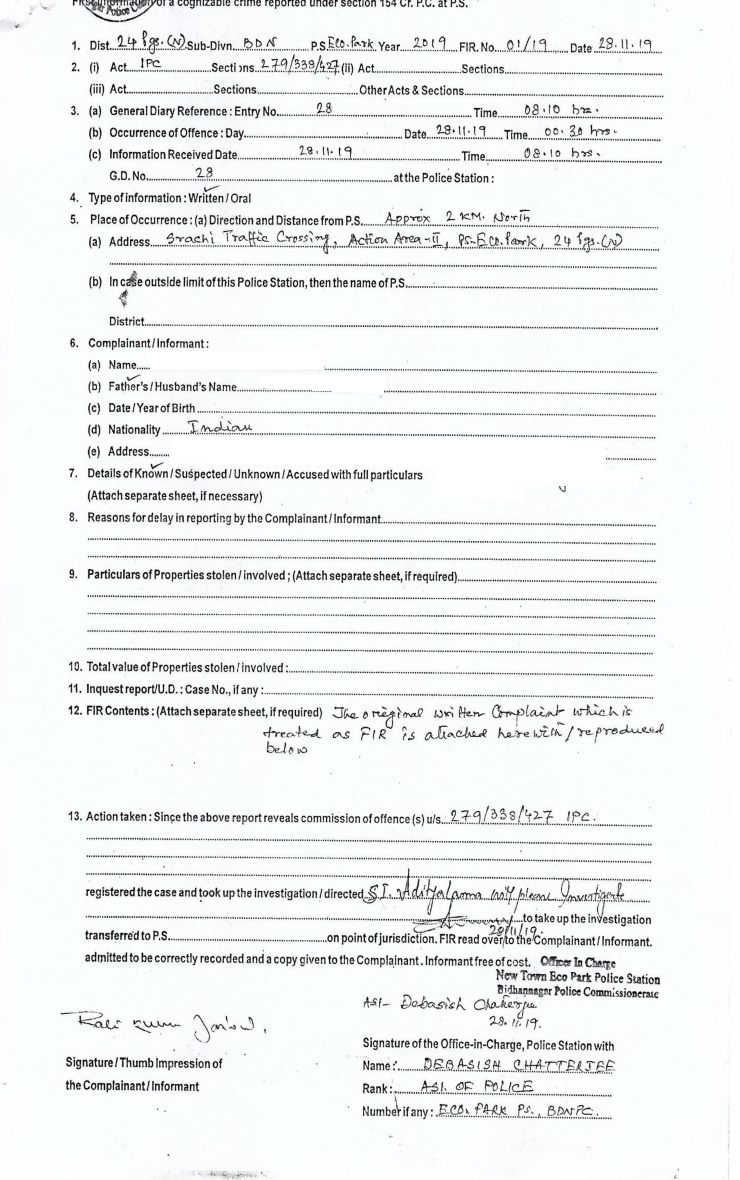 First Information of a cognizable crime reported under section 154 Cr. P.C. at P.S.
1. Dist. 24 Pgs.(N) Sub-Divn. BDN P.S. Eco.Park Year 2019 FIR. No. 01/19 Date 28.11.19
2. (i) Act IPC Sections 279/338/427 (ii) Act Sections
(iii) Act Sections Other Acts & Sections
3. (a) General Diary Reference : Entry No. 28 Time 08.10 hrs.
(b) Occurrence of Offence : Day Date 28.11.19 Time 00.30 hrs.
(c) Information Received Date 28.11.19 Time 08.10 hrs.
G.D. No. 28 at the Police Station :
4. Type of information : Written / Oral
5. Place of Occurrence : (a) Direction and Distance from P.S. Approx 2 KM. North
(a) Address Srachi Traffic Crossing, Action Area-II, PS-Eco.Park, 24 Pgs.(N)
(b) In case outside limit of this Police Station, then the name of P.S.
District
6. Complainant / Informant :
(a) Name
(b) Father's / Husband's Name
(c) Date / Year of Birth
(d) Nationality Indian
(e) Address
7. Details of Known / Suspected / Unknown / Accused with full particulars
(Attach separate sheet, if necessary)
8. Reasons for delay in reporting by the Complainant / Informant
9. Particulars of Properties stolen / involved ; (Attach separate sheet, if required)
10. Total value of Properties stolen / involved :
11. Inquest report/U.D. : Case No., if any :
12. FIR Contents : (Attach separate sheet, if required) The original written Complaint which is
treated as FIR is attached herewith / reproduced
below
13. Action taken : Since the above report reveals commission of offence (s) u/s. 279/338/427 IPC.
registered the case and took up the investigation / directed S.I. Investigate
to take up the investigation
28/11/19.
transferred to P.S. on point of jurisdiction. FIR read over to the Complainant / Informant.
admitted to be correctly recorded and a copy given to the Complainant. Informant free of cost. Officer In Charge
New Town Eco Park Police Station
Bidhannagar Police Commissionerate
ASI- Debasish Chatterjee
28.11.19.
Signature of the Office-in-Charge, Police Station with
Signature / Thumb Impression of
the Complainant / Informant
Name : DEBASISH CHATTERJEE
Rank : ASI. OF POLICE
Number if any : ECO. PARK PS., BDNPC.